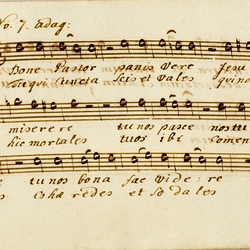 No. 7. Adag:
Bone Pastor panis vere Jesu
Tu qui cuncta scis et vales qui nos
miserere tu nos pasce nos tu
hic mortales tuos ibi comen
tu nos bona fac vide: re
s Cohæredes et so da les